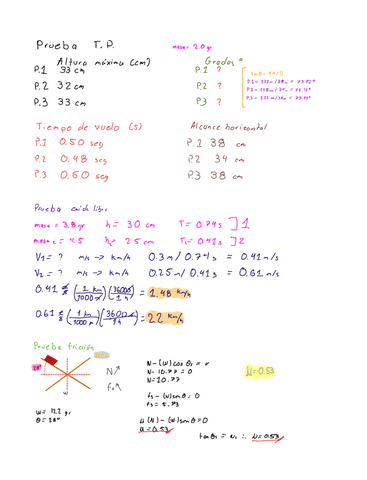 Prueba T.P.
masa = 2.0 gr
Altura máxima (cm)
P.1 33 cm
P.2 32 cm
P.3 33 cm
Grados °
P.1 ?
P.2 ?
P.3 ?
Tiempo de vuelo (s)
P.1 0.50 seg
P.2 0.48 seg
P.3 0.60 seg
Alcance horizontal
P.1 38 cm
P.2 34 cm
P.3 38 cm
Prueba caida libre
masa = 3.8 gr h = 30 cm T = 0.74 s ] 1
masa 2 = 4.5 h = 25 cm T = 0.41 s ] 2
V1 = ? m/s → km/h 0.3 m / 0.74 s = 0.41 m/s
V2 = ? m/s → km/h 0.25 m / 0.41 s = 0.61 m/s
0.41 m/s (1 km/1000 m) (3600 s/1 h) = 1.48 km/h
0.61 m/s (1 km/1000 m) (3600 s/1 h) = 2.2 km/h
Prueba fricción
28°
N↗
fs↖
w
W = 12.2 gr
θ = 28°
N = 10.77
fs - (W) sen θ = 0
fs = 5.73
μ (N) - (W) sen θ = 0
μ = 0.53
μ = 0.53
tan θs = μs ∴ μ = 0.53